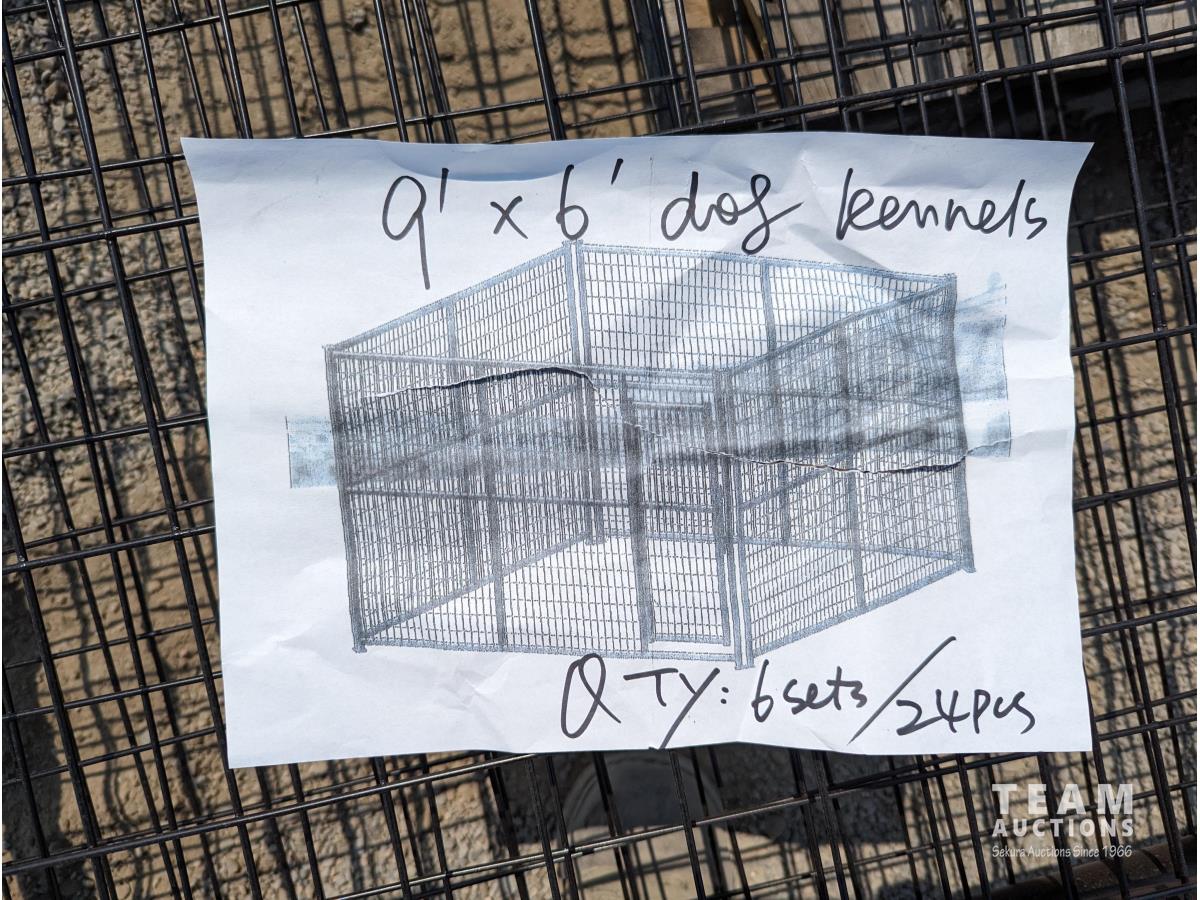 9' x 6' dog kennels
QTY: 6 sets / 24 pcs
TEAM
AUCTIONS
Sekura Auctions Since 1966